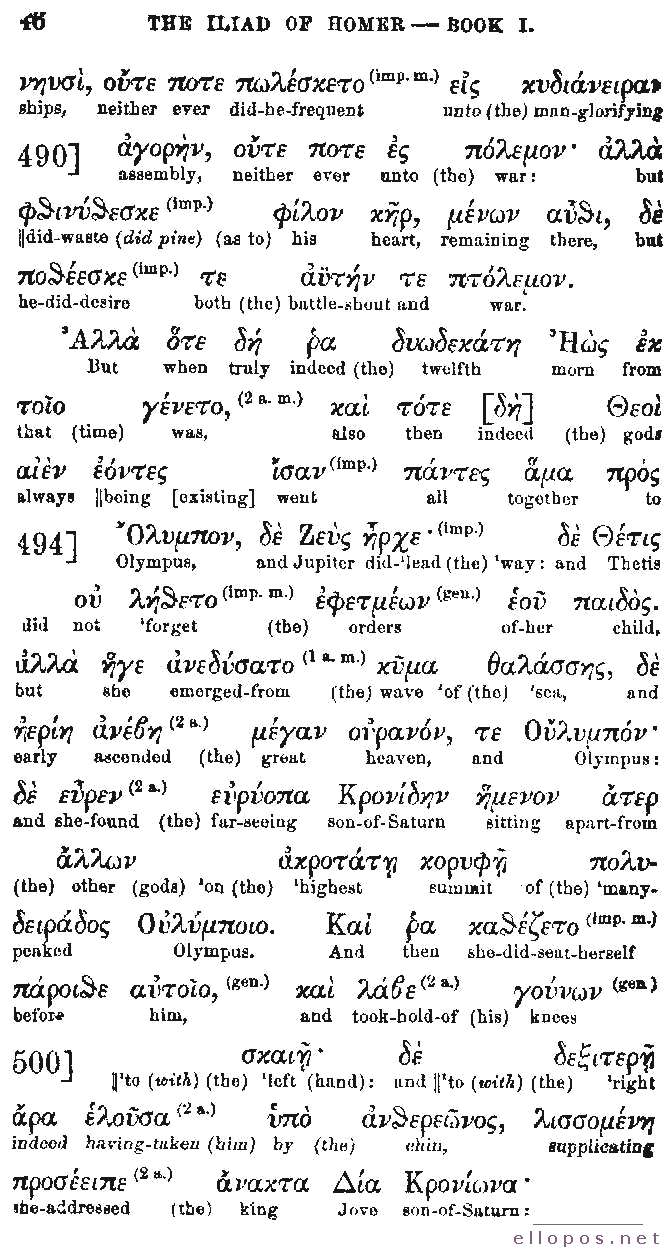 THE ILIAD OF HOMER — BOOK I.
νηυσὶ, οὔτε ποτε πωλέσκετο (imp. m.) εἰς κυδιάνειραν
ships, neither ever did-he-frequent unto (the) man-glorifying
490] ἀγορὴν, οὔτε ποτε ἐς πόλεμον· ἀλλὰ
assembly, neither ever unto (the) war: but
φϑινύϑεσκε (imp.) φίλον κῆρ, μένων αὖϑι, δὲ
||did-waste (did pine) (as to) his heart, remaining there, but
ποϑέεσκε (imp.) τε ἀϋτήν τε πτόλεμον.
he-did-desire both (the) battle-shout and war.
Ἀλλὰ ὅτε δή ῥα δυωδεκάτη Ἠὼς ἐκ
But when truly indeed (the) twelfth morn from
τοῖο γένετο, (2 a. m.) καὶ τότε [δὴ] Θεοὶ
that (time) was, also then indeed (the) gods
αἰὲν ἐόντες ἴσαν (imp.) πάντες ἅμα πρὸς
always ||being [existing] went all together to
494] Ὄλυμπον, δὲ Ζεὺς ἦρχε· (imp.) δὲ Θέτις
Olympus, and Jupiter did-'lead (the) 'way: and Thetis
οὐ λήϑετο (imp. m.) ἐφετμέων (gen.) ἑοῦ παιδὸς.
did not 'forget (the) orders of-her child,
ἀλλὰ ἥγε ἀνεδύσατο (1 a. m.) κῦμα θαλάσσης, δὲ
but she emerged-from (the) wave 'of (the) 'sea, and
ἠερίη ἀνέβη (2 a.) μέγαν οὐρανόν, τε Οὔλυμπόν·
early ascended (the) great heaven, and Olympus:
δὲ εὗρεν (2 a.) εὐρύοπα Κρονίδην ἥμενον ἄτερ
and she-found (the) far-seeing son-of-Saturn sitting apart-from
ἄλλων ἀκροτάτῃ κορυφῇ πολυ-
(the) other (gods) 'on (the) 'highest summit of (the) 'many-
δειράδος Οὐλύμποιο. Καὶ ῥα καϑέζετο (imp. m.)
peaked Olympus. And then she-did-seat-herself
πάροιϑε αὐτοῖο, (gen.) καὶ λάβε (2 a.) γούνων (gen)
before him, and took-hold-of (his) knees
500] σκαιῇ· δὲ δεξιτερῇ
||'to (with) (the) 'left (hand): and ||'to (with) (the) 'right
ἄρα ἑλοῦσα (2 a.) ὑπὸ ἀνϑερεῶνος, λισσομένη
indeed having-taken (him) by (the) chin, supplicating
προσέειπε (2 a.) ἄνακτα Δία Κρονίωνα·
she-addressed (the) king Jove son-of-Saturn:
ellopos.net